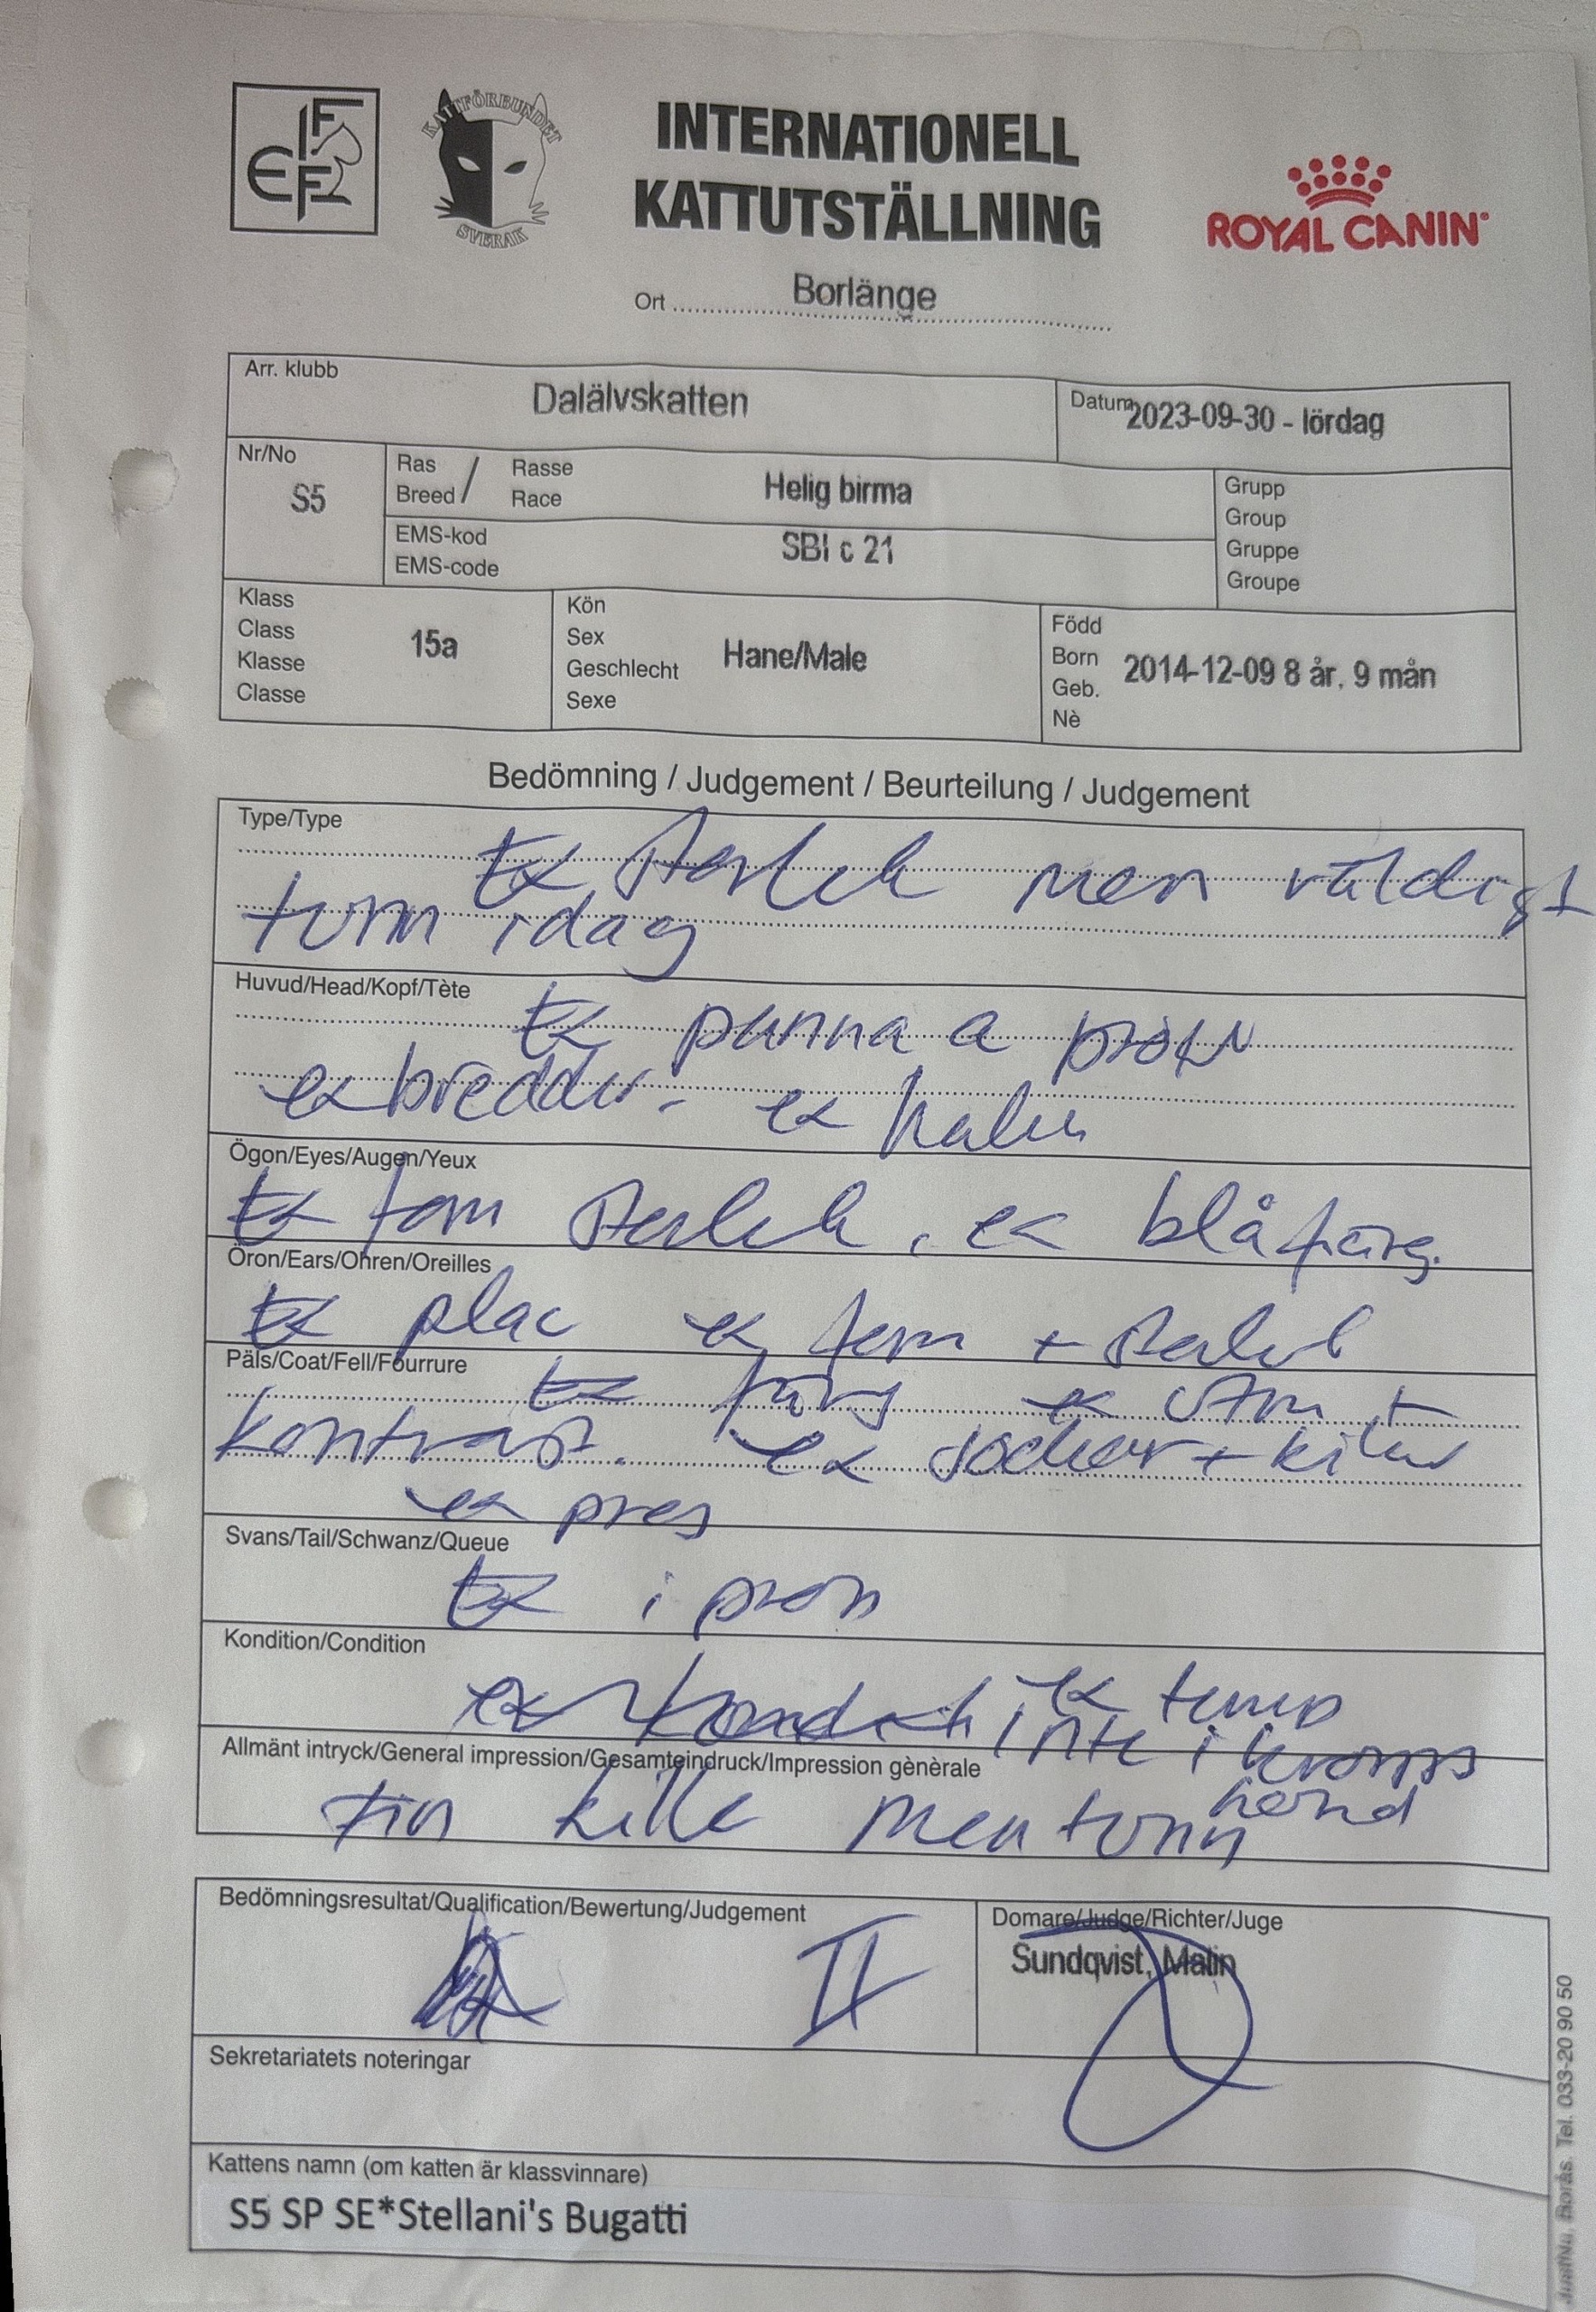 FIFE
KATTFÖRBUNDET
SVERAK
INTERNATIONELL
KATTUTSTÄLLNING
ROYAL CANIN
Ort Borlänge
Arr. klubb
Dalälvskatten
Datum 2023-09-30 - lördag
Nr/No
S5
Ras
Breed /
Rasse
Race
Helig birma
EMS-kod
EMS-code
SBI c 21
Grupp
Group
Gruppe
Groupe
Klass
Class
Klasse
Classe
15a
Kön
Sex
Geschlecht
Sexe
Hane/Male
Född
Born
Geb.
Nè
2014-12-09 8 år, 9 mån
Bedömning / Judgement / Beurteilung / Judgement
Type/Type
Ex storlek men väldigt
tunn idag
Huvud/Head/Kopf/Tète
Ex panna & profil
ex bredd. ex haka
Ögon/Eyes/Augen/Yeux
Ex form storlek, ex blå färg.
Öron/Ears/Ohren/Oreilles
Ex plac ex form + storlek
Päls/Coat/Fell/Fourrure
Ex färg ex
kontrast. ex sockor + kilar
ex pres
Svans/Tail/Schwanz/Queue
Ex i prop
Kondition/Condition
ex temp
Allmänt intryck/General impression/Gesamteindruck/Impression gènèrale
inte i kropps
Fin kille men tunn
Bedömningsresultat/Qualification/Bewertung/Judgement
II
Domare/Judge/Richter/Juge
Sundqvist, Malin
Sekretariatets noteringar
Kattens namn (om katten är klassvinnare)
S5 SP SE*Stellani's Bugatti
Borås. Tel. 033-20 90 50